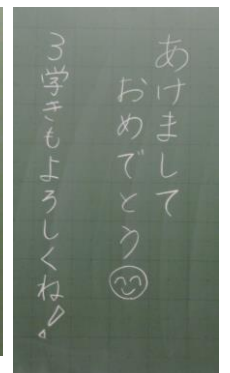 あけまして
おめでとう
3学きもよろしくね!